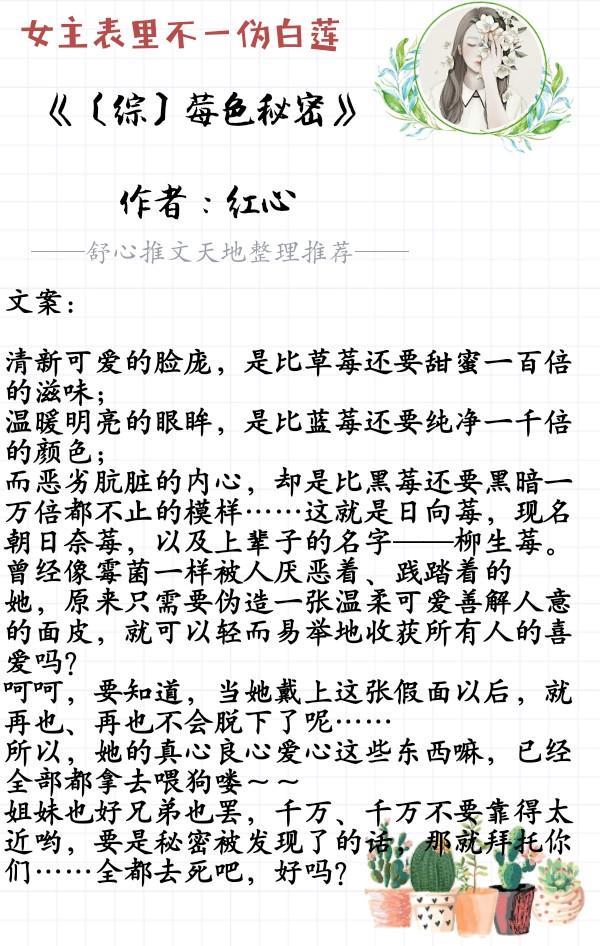 女主表里不一伪白莲
《〔综〕莓色秘密》
作者：红心
——舒心推文天地整理推荐——
文案：
清新可爱的脸庞，是比草莓还要甜蜜一百倍
的滋味；
温暖明亮的眼眸，是比蓝莓还要纯净一千倍
的颜色；
而恶劣肮脏的内心，却是比黑莓还要黑暗一
万倍都不止的模样……这就是日向莓，现名
朝日奈莓，以及上辈子的名字——柳生莓。
曾经像霉菌一样被人厌恶着、践踏着的
她，原来只需要伪造一张温柔可爱善解人意
的面皮，就可以轻而易举地收获所有人的喜
爱吗？
呵呵，要知道，当她戴上这张假面以后，就
再也、再也不会脱下了呢……
所以，她的真心良心爱心这些东西嘛，已经
全部都拿去喂狗喽～～
姐妹也好兄弟也罢，千万、千万不要靠得太
近哟，要是秘密被发现了的话，那就拜托你
们……全都去死吧，好吗？